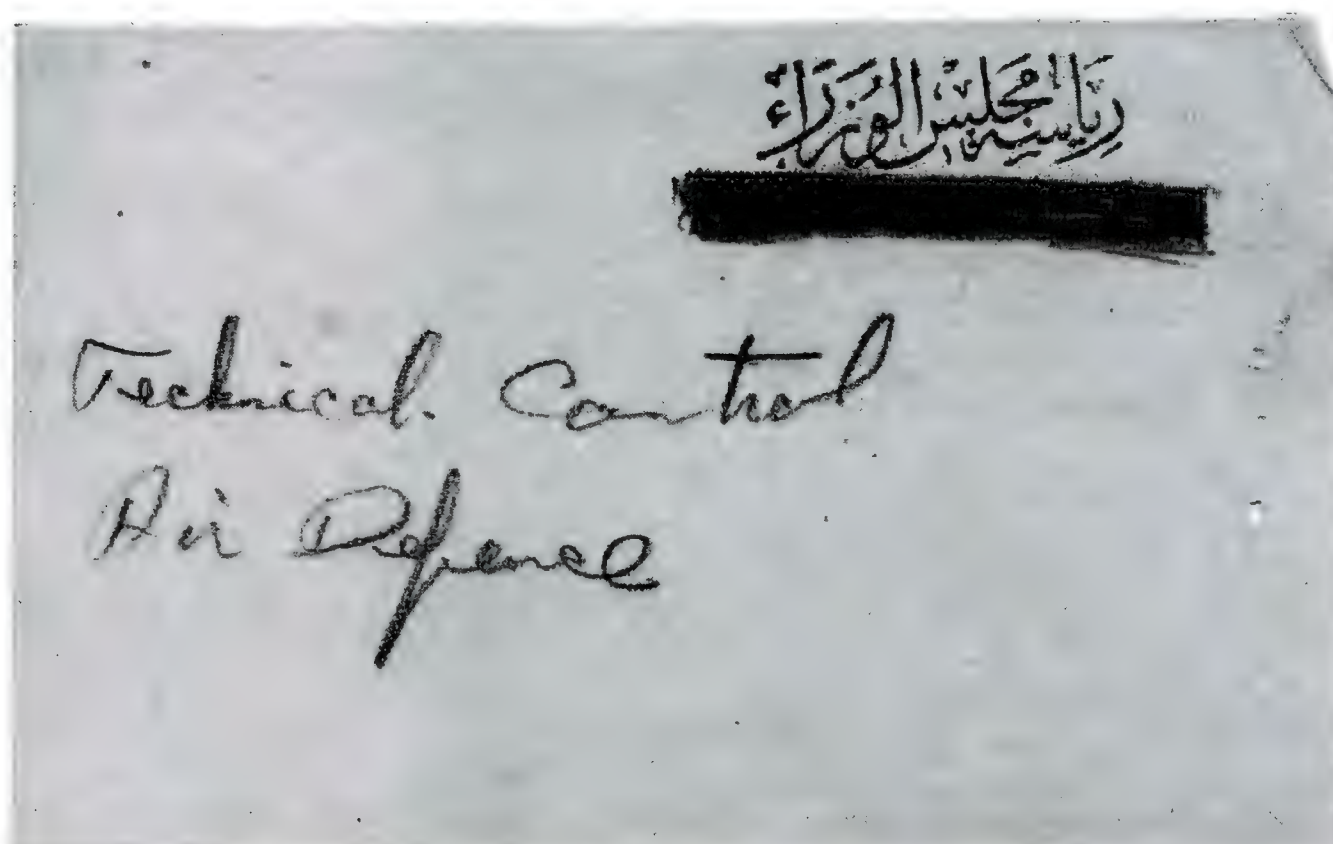 رياسة مجلس الوزراء
Technical Control
Air Defence